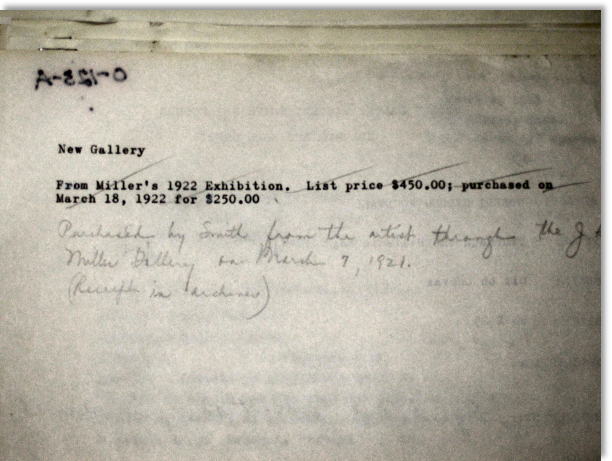 O-123-A
New Gallery
From Miller's 1922 Exhibition. List price $450.00; purchased on
March 18, 1922 for $250.00
Purchased by Smith from the artist through the J
Miller Gallery on March 7, 1921.
(Receipt in archives)